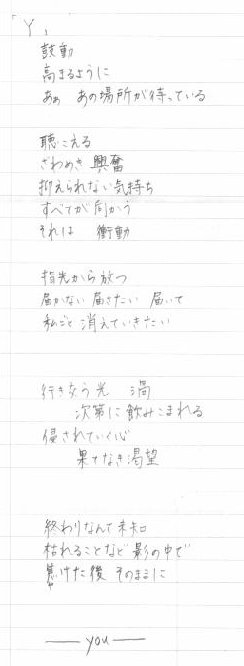 「Y」
鼓動
高まるように
あぁ あの場所が待っている
聴こえる
ざわめき 興奮
抑えられない気持ち
すべてが向かう
それは 衝動
指先から放つ
届かない 届きたい 届いて
私ごと 消えていきたい
行き交う光 渦
次第に飲みこまれる
侵されていく心
果てなき渇望
終わりなんて未知
枯れることなど 影の中で
焦げた後 そのままに
you